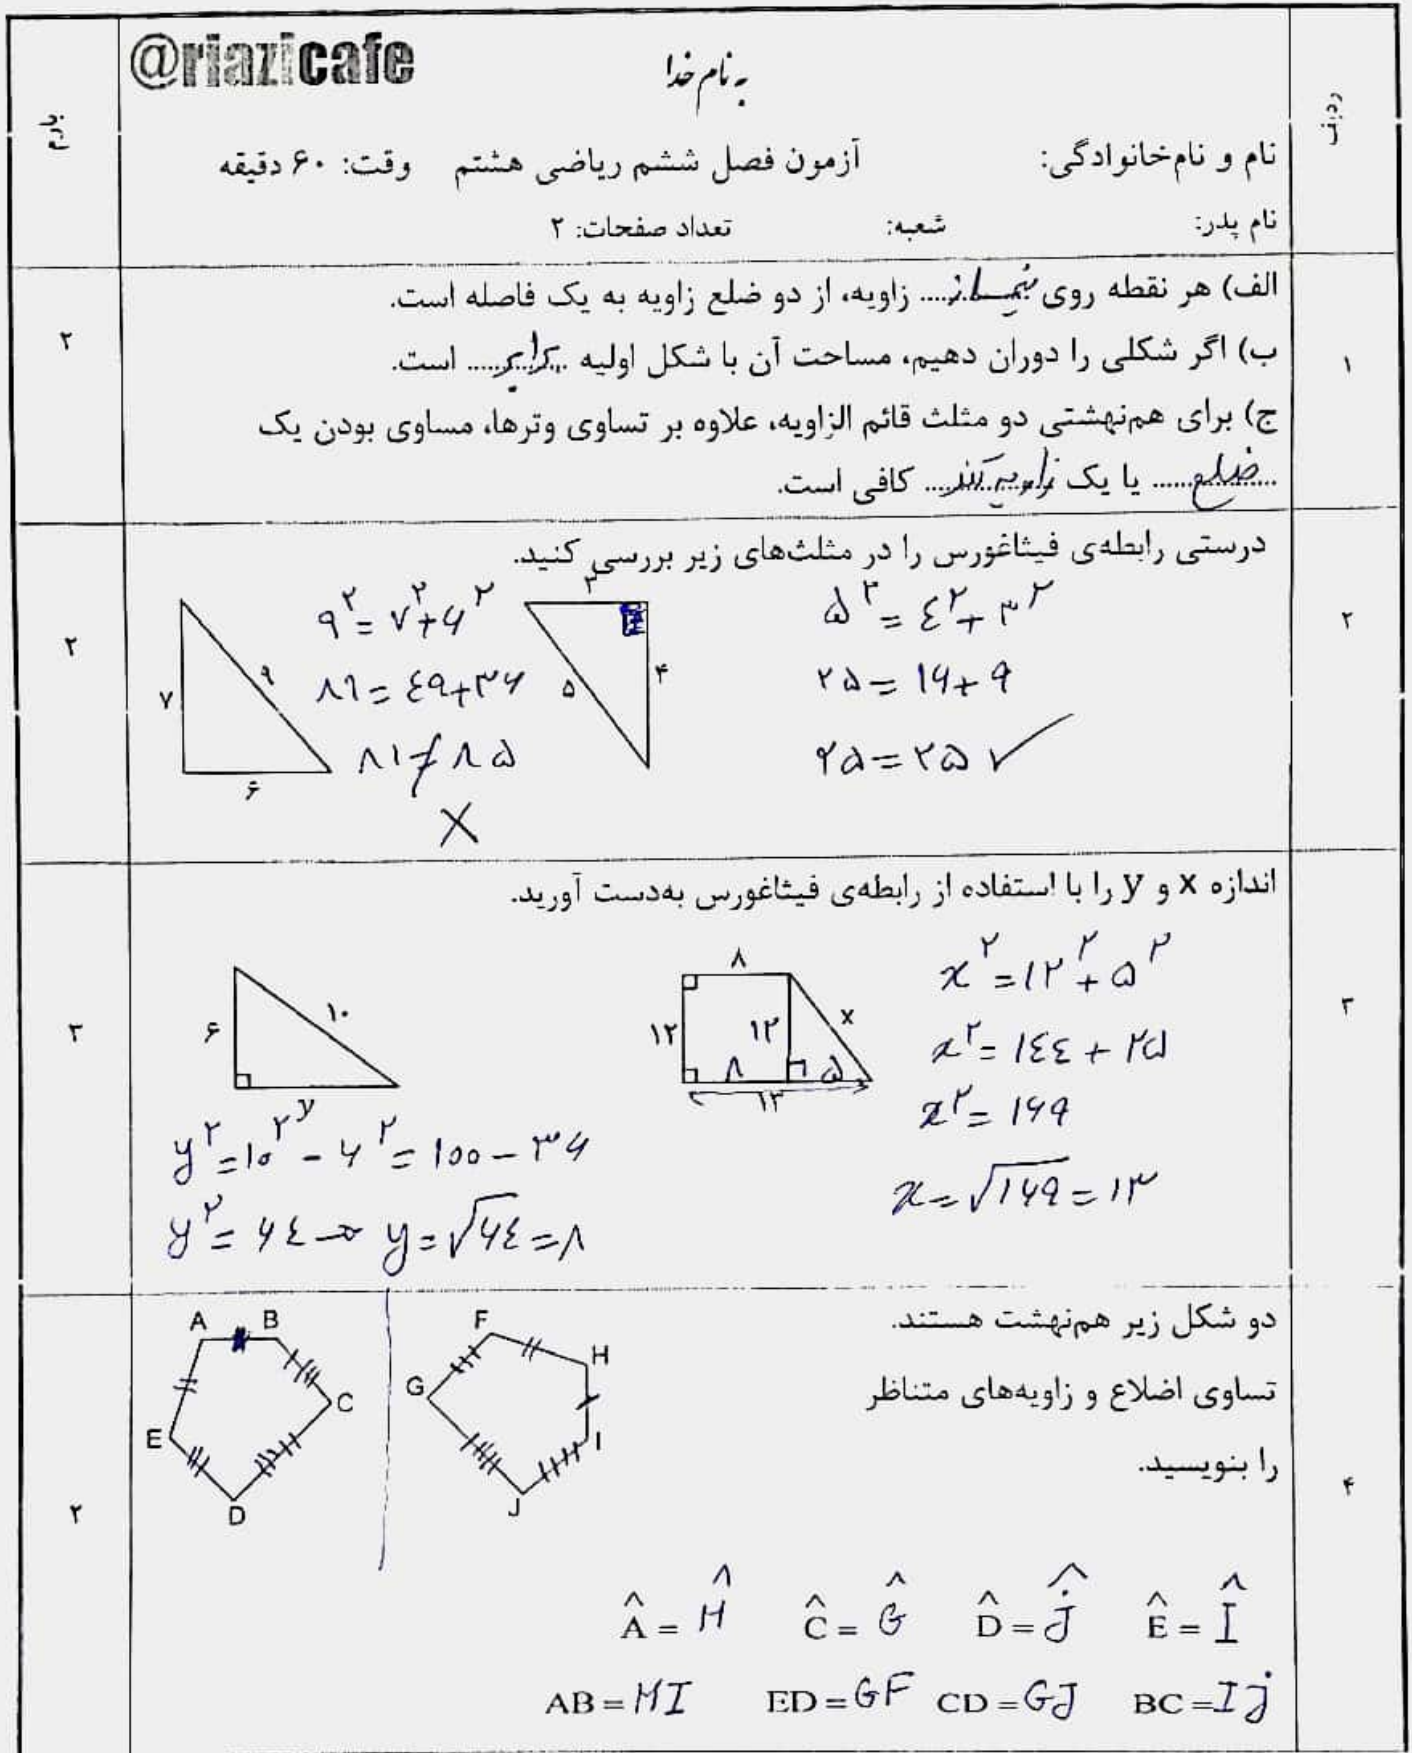 @riazicafe
به نام خدا
ردیف
بارم
نام و نام‌خانوادگی: آزمون فصل ششم ریاضی هشتم وقت: ۶۰ دقیقه
نام پدر: شعبه: تعداد صفحات: ۲
۱
الف) هر نقطه روی نیمساز زاویه، از دو ضلع زاویه به یک فاصله است.
ب) اگر شکلی را دوران دهیم، مساحت آن با شکل اولیه برابر است.
ج) برای هم‌نهشتی دو مثلث قائم الزاویه، علاوه بر تساوی وترها، مساوی بودن یک
ضلع یا یک زاویه تند کافی است.
۲
۲
درستی رابطه‌ی فیثاغورس را در مثلث‌های زیر بررسی کنید.
۵^۲ = ٤^۲ + ۳^۲
۲۵ = ۱۶ + ۹
۲۵ = ۲۵ ✓
۳
۴
۵
۹^۲ = ۷^۲ + ۶^۲
۸۱ = ٤۹ + ۳۶
۸۱ ≠ ۸۵
X
۷
۹
۶
۲
۳
اندازه x و y را با استفاده از رابطه‌ی فیثاغورس به‌دست آورید.
x^۲ = ۱۲^۲ + ۵^۲
x^۲ = ۱٤٤ + ۲۵
x^۲ = ۱۶۹
x = √۱۶۹ = ۱۳
۸
۱۲ ۱۲ x
۸ ۵
۱۳
۶ ۱۰
y
y^۲ = ۱۰^۲ - ۶^۲ = ۱۰۰ - ۳۶
y^۲ = ۶٤ → y = √۶٤ = ۸
۳
۴
دو شکل زیر هم‌نهشت هستند.
تساوی اضلاع و زاویه‌های متناظر
را بنویسید.
A B
C
E
D
F
H
G
I
J
Â = Ĥ Ĉ = Ĝ D̂ = Ĵ Ê = Î
AB = HI ED = GF CD = GJ BC = IJ
۲